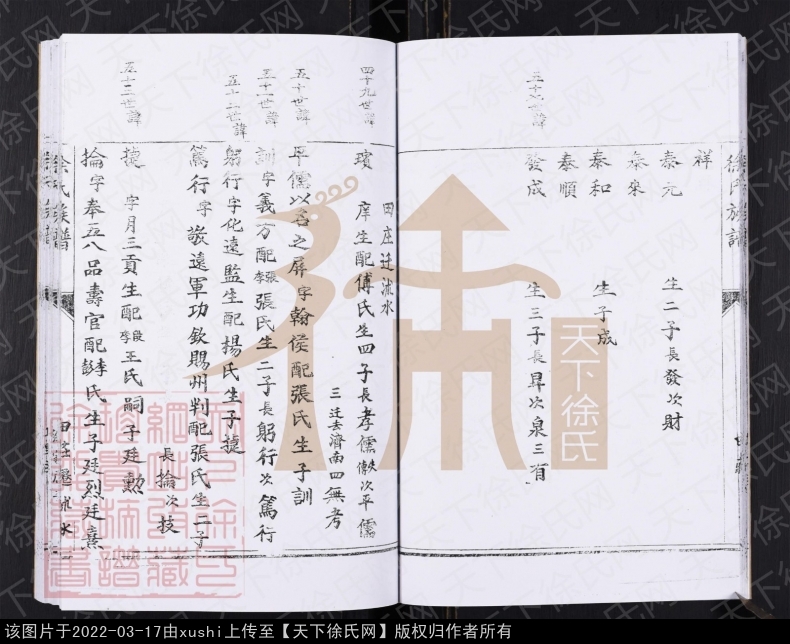 徐氏族譜
祥
泰元 生二子長發次財
泰來
泰和 生子成
泰順
五十一世諱
發成 生三子長昇次泉三有
田庄迁流水
四十九世諱
瓊 庠生配傅氏生四子長孝儒次平儒
三迁去濟南四無考
五十世諱
平儒以名之屏字翰侯配張氏生子訓
五十一世諱
訓字義方配張李張氏生二子長躬行次篤行
五十二世諱
躬行字化遠監生配楊氏生子捷
篤行字敬遠軍功欽賜州判配張氏生二子
長掄次技
五十三世諱
捷 字月三貢生配段李王氏嗣子廷勲
掄字奉五八品壽官配李彭氏生子廷烈廷熹
徐氏族譜
田庄迁流水
天下徐氏
天下徐氏网
该图片于2022-03-17由xushi上传至【天下徐氏网】版权归作者所有